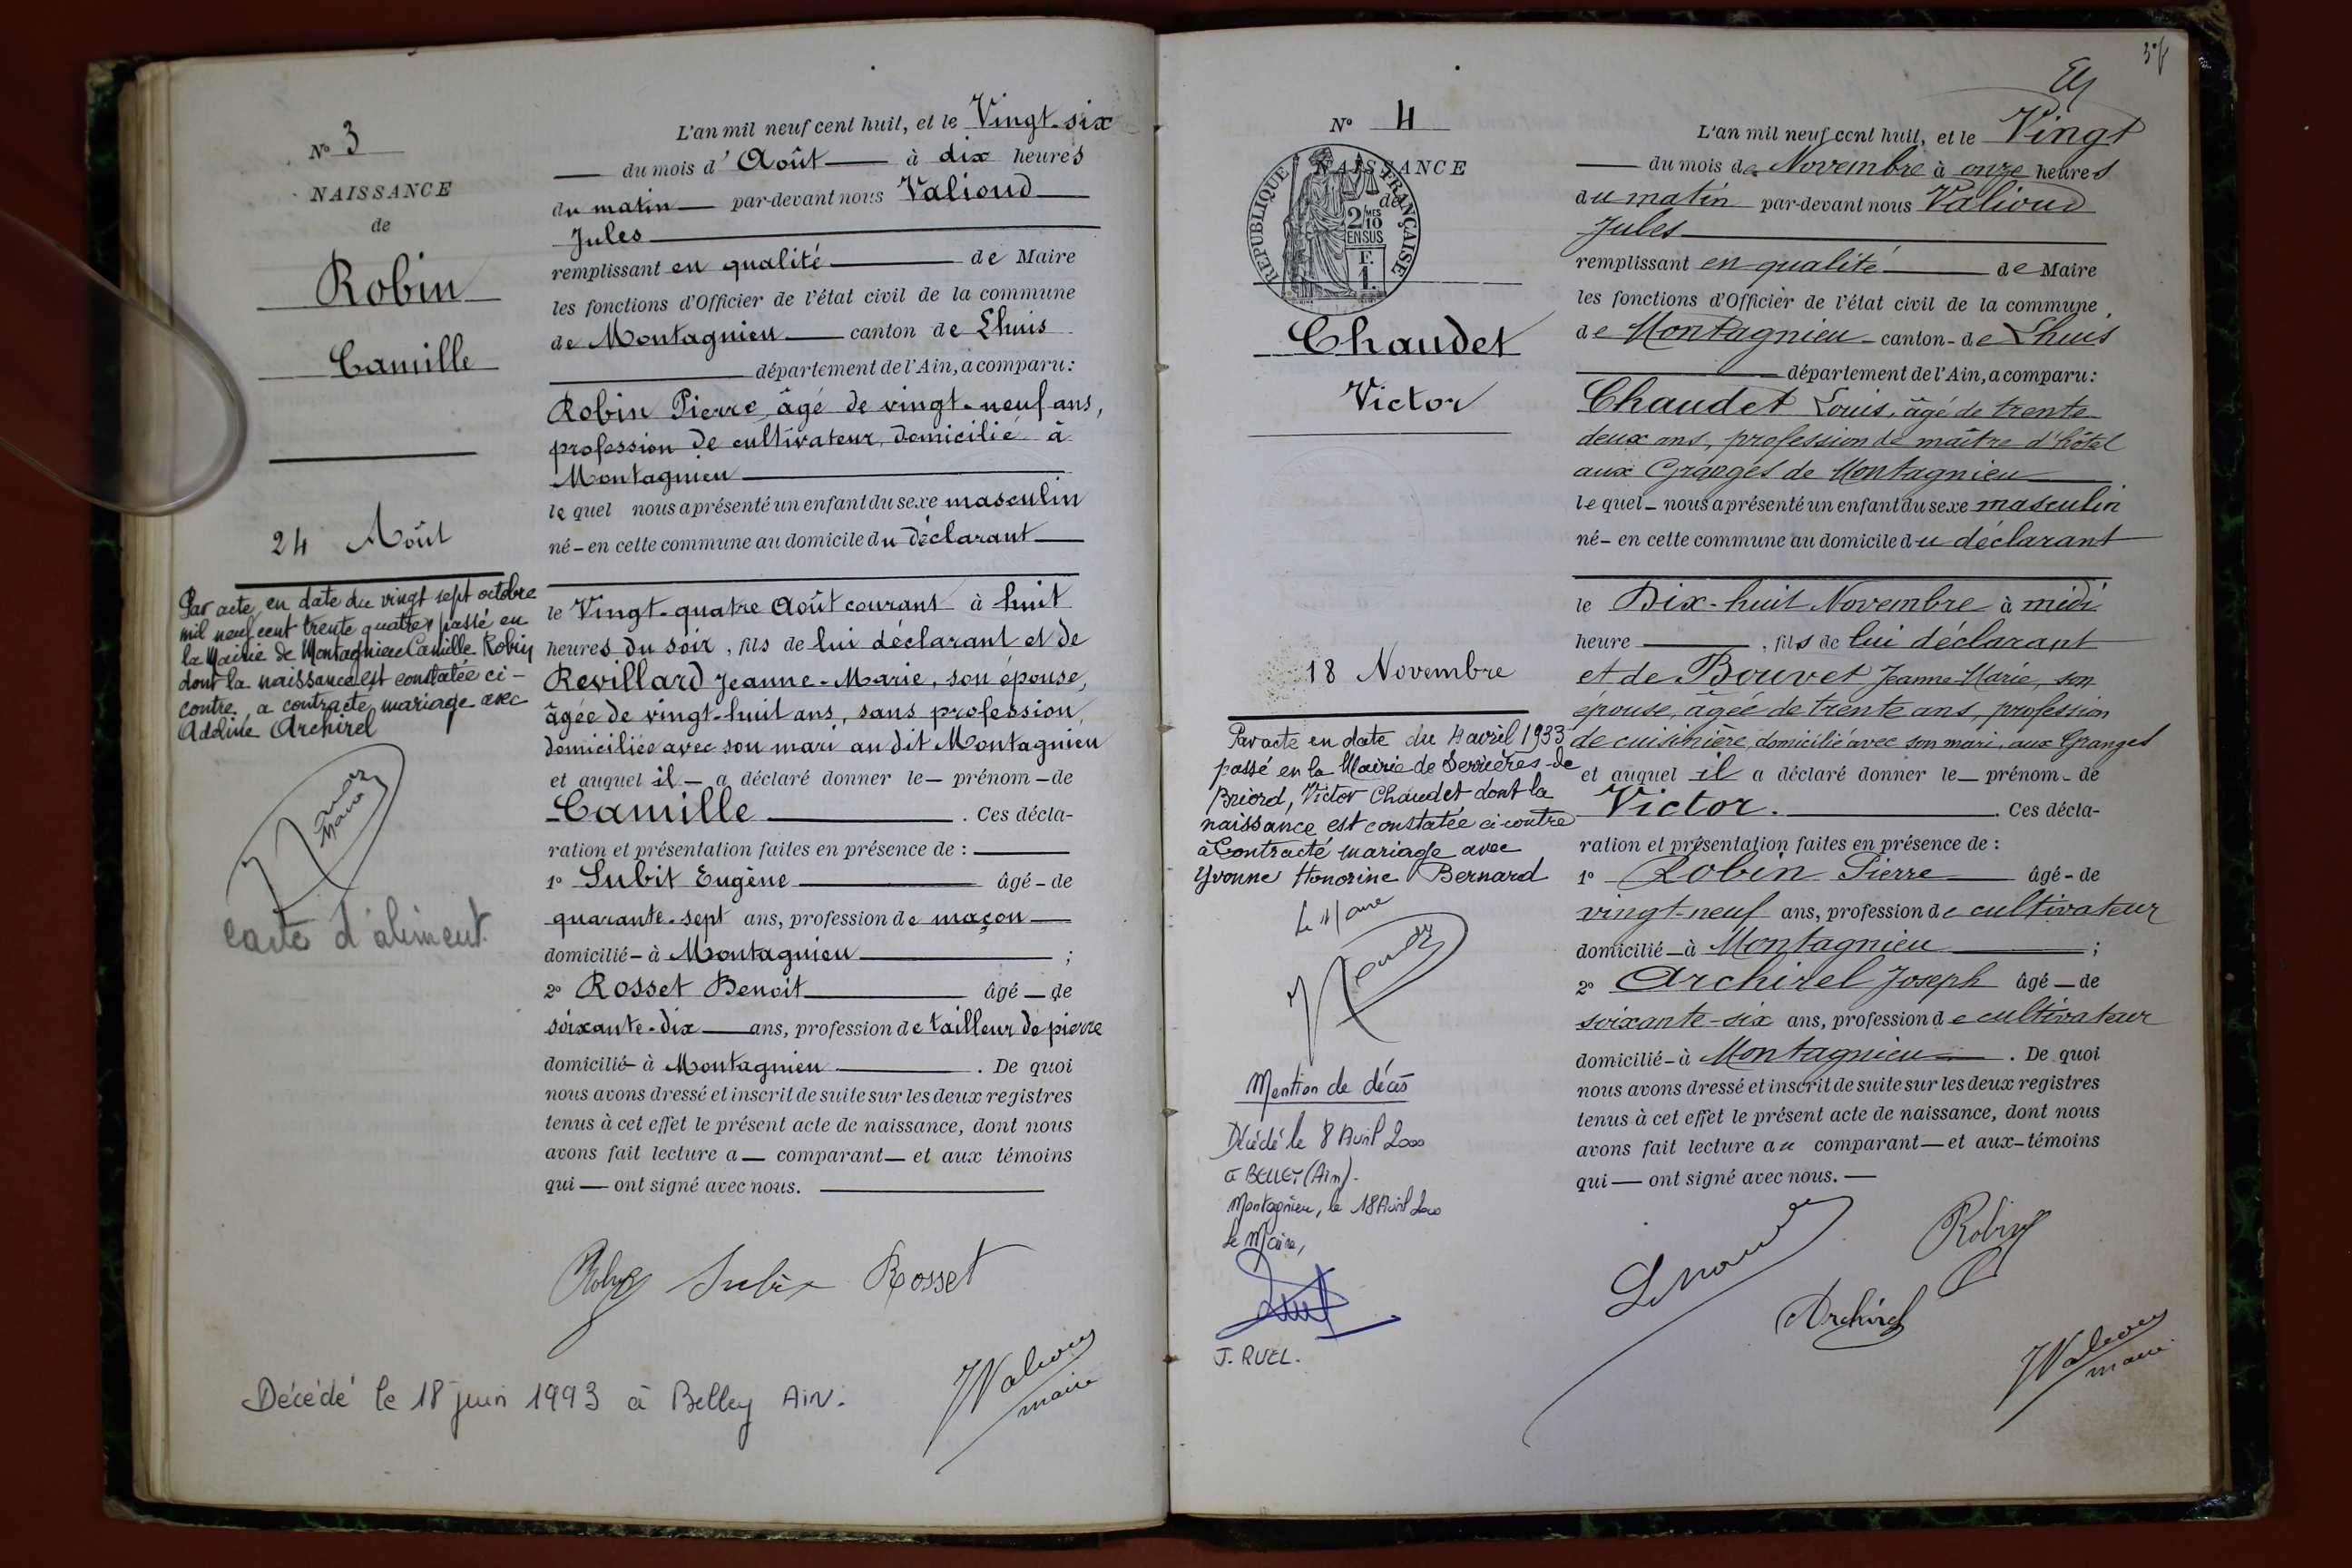 N° 3
NAISSANCE
de
Robin
Camille
24 Août
Par acte, en date du vingt sept octobre
mil neuf cent trente quatre, passé en
la Mairie de Montagnieu Camille Robin
dont la naissance est constatée ci-
contre, a contracté mariage avec
Adeline Archirel
Maire
carte d'aliment.
L'an mil neuf cent huit, et le Vingt-six
du mois d'Août à dix heures
du matin par-devant nous Valioud
Jules
remplissant en qualité de Maire
les fonctions d'Officier de l'état civil de la commune
de Montagnieu canton de Lhuis
département de l'Ain, a comparu:
Robin Pierre, âgé de vingt-neuf ans,
profession de cultivateur, domicilié à
Montagnieu
lequel nous a présenté un enfant du sexe masculin
né - en cette commune au domicile du déclarant
le Vingt-quatre Août courant à huit
heures du soir, fils de lui déclarant et de
Revillard Jeanne-Marie, son épouse,
âgée de vingt-huit ans, sans profession,
domiciliée avec son mari au dit Montagnieu
et auquel il - a déclaré donner le - prénom - de
Camille. Ces décla-
ration et présentation faites en présence de :
1° Subit Eugène âgé - de
quarante-sept ans, profession de maçon
domicilié - à Montagnieu ;
2° Rosset Benoit âgé - de
soixante-dix ans, profession de tailleur de pierre
domicilié - à Montagnieu. De quoi
nous avons dressé et inscrit de suite sur les deux registres
tenus à cet effet le présent acte de naissance, dont nous
avons fait lecture a - comparant - et aux témoins
qui - ont signé avec nous.
Robin Subit Rosset
JValioud
maire
Décédé le 18 juin 1993 à Belley Ain.
N° 4
NAISSANCE
de
RÉPUBLIQUE FRANÇAISE
2/10 MES
EN SUS
F.
1.
Chaudet
Victor
18 Novembre
Par acte en date du 4 avril 1933
passé en la Mairie de Serrières-de
Briord, Victor Chaudet dont la
naissance est constatée ci contre
à Contracté mariage avec
Yvonne Honorine Bernard
Le Maire
Mention de décès
Décédé le 8 Avril 2000
à BELLEY (Ain).
Montagnieu, le 18 Avril 2000
Le Maire,
J. RUEL.
L'an mil neuf cent huit, et le Vingt
du mois de Novembre à onze heures
du matin par-devant nous Valioud
Jules
remplissant en qualité de Maire
les fonctions d'Officier de l'état civil de la commune
de Montagnieu canton - de Lhuis
département de l'Ain, a comparu:
Chaudet Louis, âgé de trente
deux ans, profession de maître d'hôtel
aux Granges de Montagnieu
lequel - nous a présenté un enfant du sexe masculin
né - en cette commune au domicile du déclarant
le Dix-huit Novembre à midi
heure, fils de lui déclarant
et de Bouvet Jeanne Marie, son
épouse, âgée de trente ans, profession
de cuisinière, domicilié avec son mari, aux Granges
et auquel il a déclaré donner le - prénom - de
Victor. Ces décla-
ration et présentation faites en présence de :
1° Robin Pierre âgé - de
vingt-neuf ans, profession de cultivateur
domicilié - à Montagnieu ;
2° Archirel Joseph âgé - de
soixante-six ans, profession de cultivateur
domicilié - à Montagnieu. De quoi
nous avons dressé et inscrit de suite sur les deux registres
tenus à cet effet le présent acte de naissance, dont nous
avons fait lecture au comparant - et aux - témoins
qui - ont signé avec nous. -
Robin
Archirel
JValioud
maire